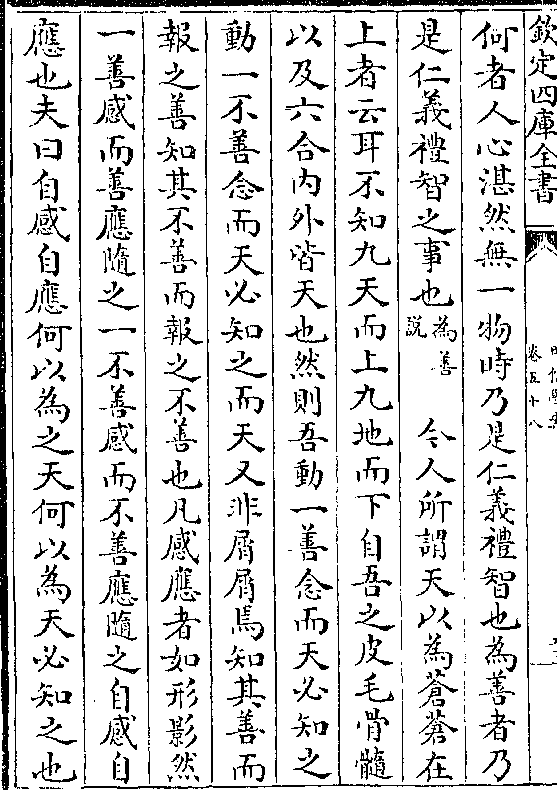 欽定四庫全書
卷五十八
何者人心湛然無一物時乃是仁義禮智也為善者乃
是仁義禮智之事也為善說　今人所謂天以為蒼蒼在
上者云耳不知九天而上九地而下自吾之皮毛骨髓
以及六合內外皆天也然則吾動一善念而天必知之
動一不善念而天必知之而天又非屑屑焉知其善而
報之善知其不善而報之不善也凡感應者如形影然
一善感而善應隨之一不善感而不善應隨之自感自
應也夫曰自感自應何以為之天何以為天必知之也